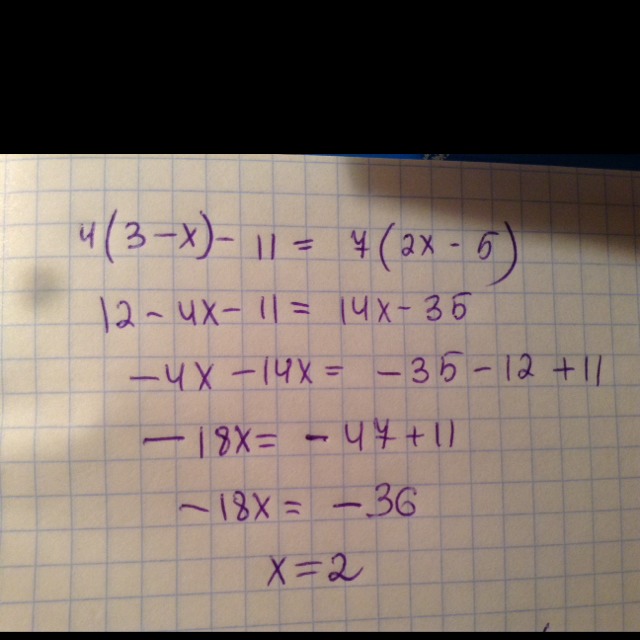 4(3-x)- 11 = 7(2x-5)
12-4x-11= 14x-35
-4x-14x= -35-12+11
-18x= -47+11
-18x= -36
x=2